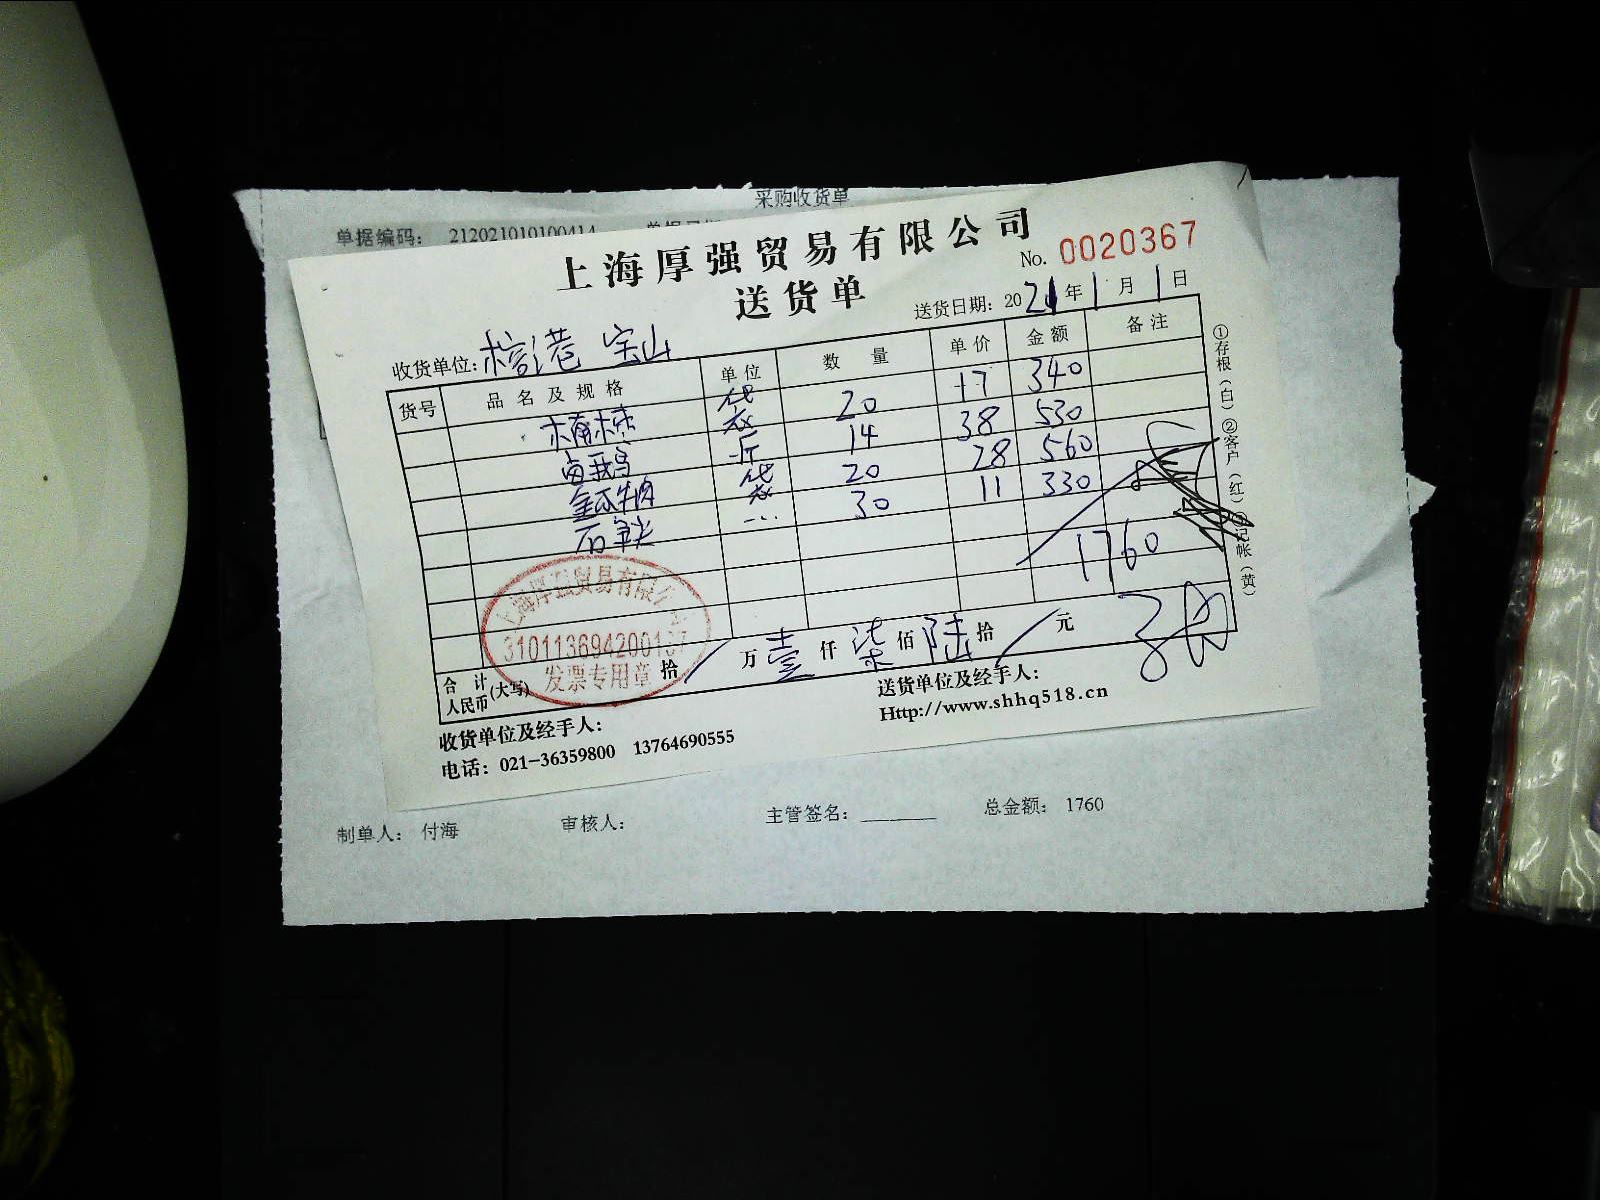 采购收货单
单据编码： 212021010100414
上海厚强贸易有限公司
No. 0020367
送货单
送货日期: 2021年1月1日
收货单位: 宝山
货号 品名及规格 单位 数量 单价 金额 备注
袋 20 17 340
卤鹅 斤 14 38 530
金瓜牛肉 袋 20 28 560
30 11 330
1760
上海厚强贸易有限公司
310113694200137
发票专用章
合计人民币(大写) 拾 / 万 壹 仟 柒 佰 陆 拾 / 元
收货单位及经手人:
送货单位及经手人:
电话: 021-36359800 13764690555
Http://www.shhq518.cn
①存根（白）②客户（红）③记帐（黄）
制单人： 付海 审核人： 主管签名： 总金额： 1760